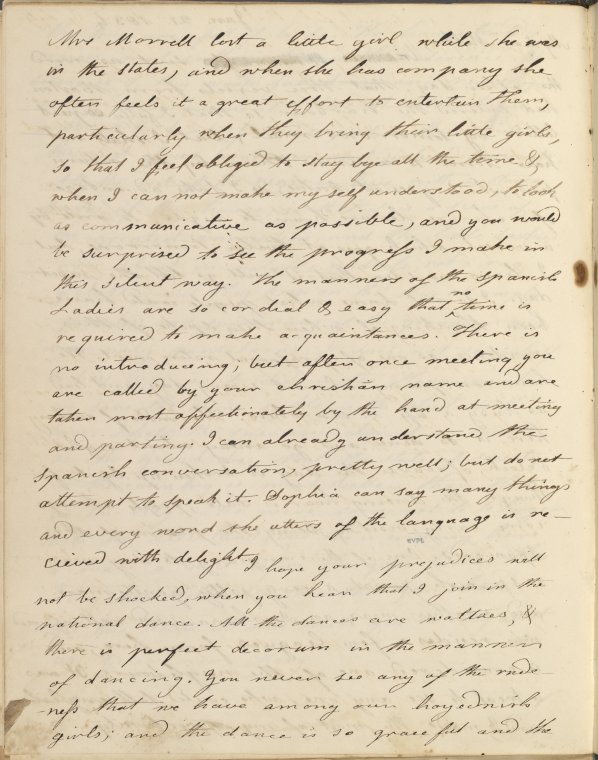 Mrs Morrell lost a little girl while she was
in the states, and when she has company she
often feels it a great effort to entertain them,
particularly when they bring their little girls,
so that I feel obliged to stay bye all the time &
when I can not make myself understood, to look
as communicative as possible, and you would
be surprised to see the progress I make in
this silent way. The manners of the Spanish
Ladies are so cordial & easy that no time is
required to make acquaintances. There is
no introducing; but after once meeting you
are called by your christian name and are
taken most affectionately by the hand at meeting
and parting. I can already understand the
Spanish conversation, pretty well; but do not
attempt to speak it. Sophia can say many things
and every word she utters of the language is re-
cieved with delight. I hope your prejudices will
not be shocked, when you hear that I join in the
national dance. All the dances are waltzes, &
there is perfect decorum in the manner
of dancing. You never see any of the rude-
-ness that we have among our hoydenish
girls; and the dance is so graceful and the
NYPL